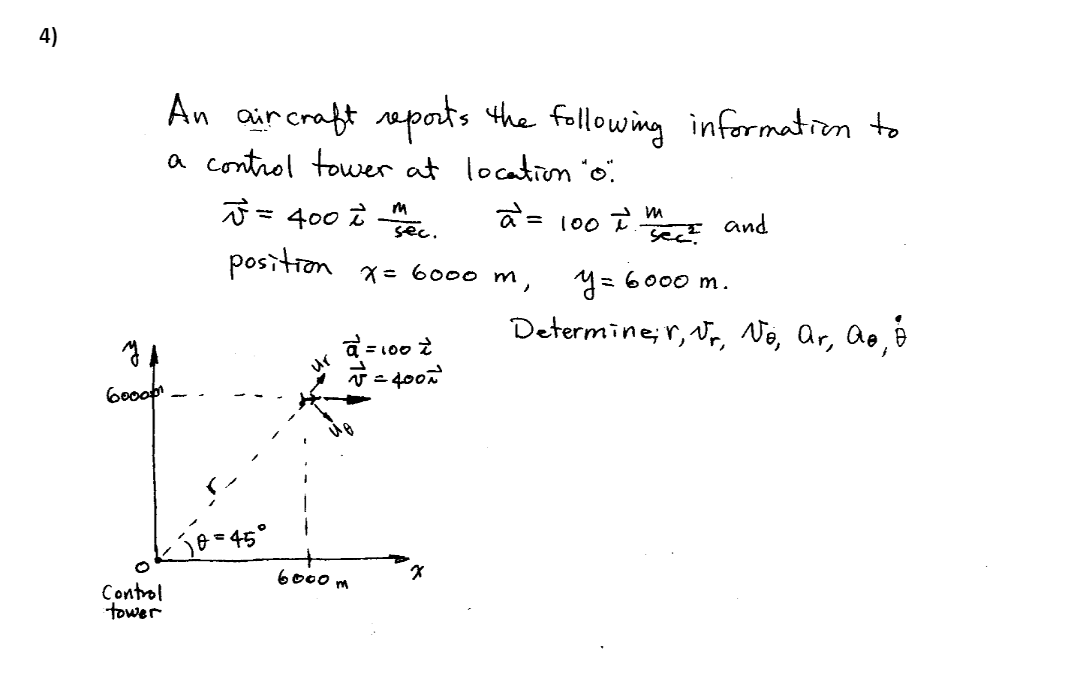 4)
An aircraft reports the following information to
a control tower at location "o".
v⃗ = 400 i⃗ m/sec. a⃗ = 100 i⃗ m/sec². and
position x = 6000 m, y = 6000 m.
Determine; r, vr, vθ, ar, aθ, θ̇
y
a⃗ = 100 i⃗
ur
v⃗ = 400 i⃗
6000m
uθ
r
θ = 45°
O
6000 m
x
Control
tower